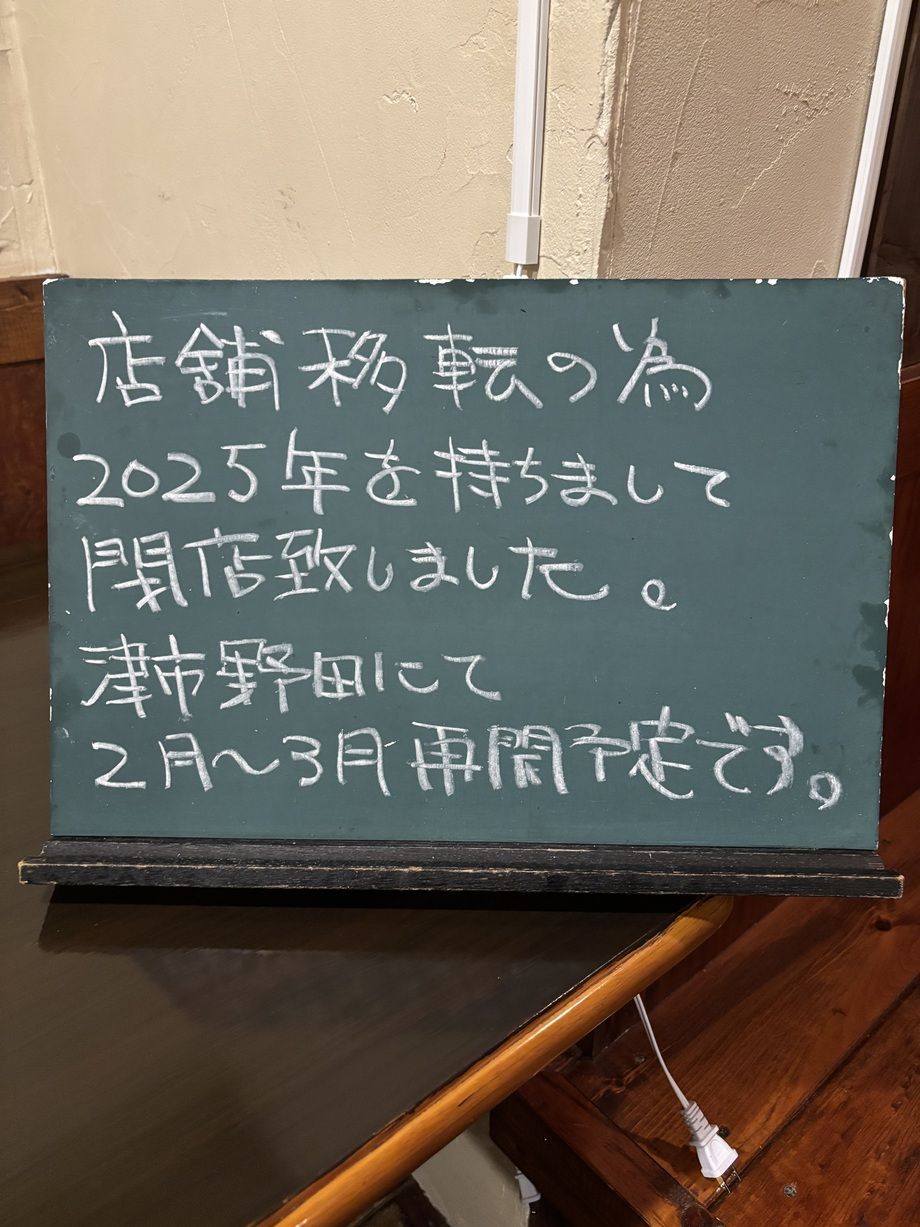 店舗移転の為
2025年を持ちまして
閉店致しました。
津市野田にて
2月〜3月再開予定です。